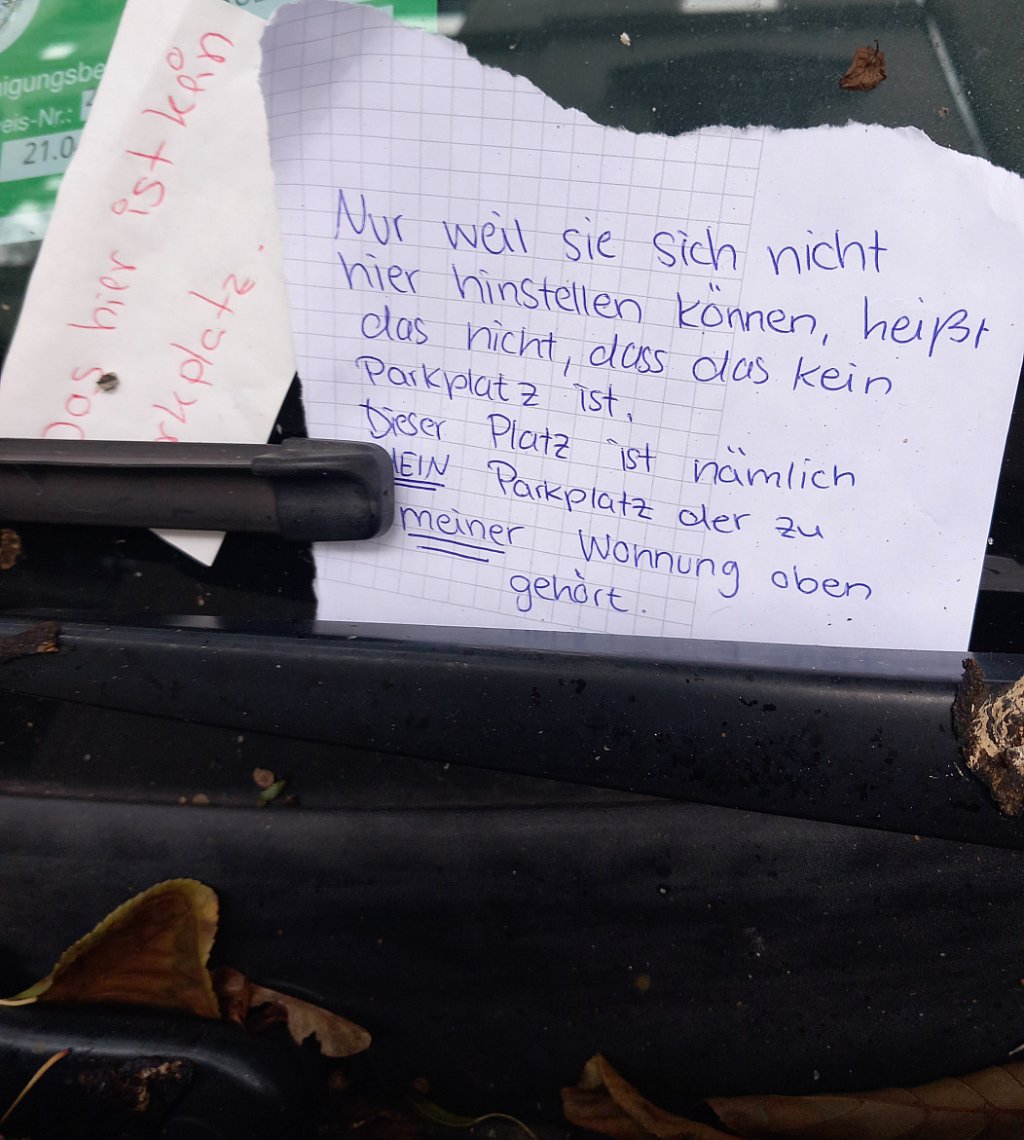 21.0
Das hier ist kein
rkplatz.
Nur weil sie sich nicht
hier hinstellen können, heißt
das nicht, dass das kein
Parkplatz ist,
Dieser Platz ist nämlich
MEIN Parkplatz der zu
meiner Wohnung oben
gehört.